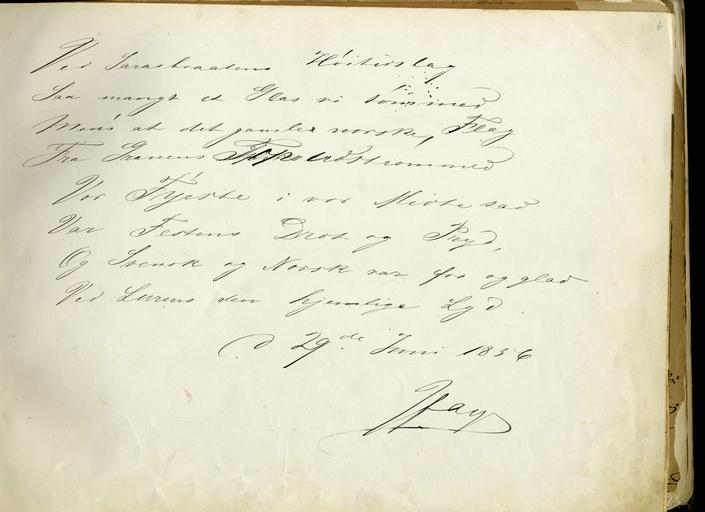 6
Ved Sarabraatens Høitidslag
Saa mangt et Glas vi tømmed
Mens at det gamle norske, Flag
Fra Granens Top udstrømmed
Vor Fyrste i vor Midte sad
Var Festens Drot og Pryd,
Og Svensk og Norsk var fro og glad
Ved Lurens den hjemlige Lyd
d 29de Juni 1856